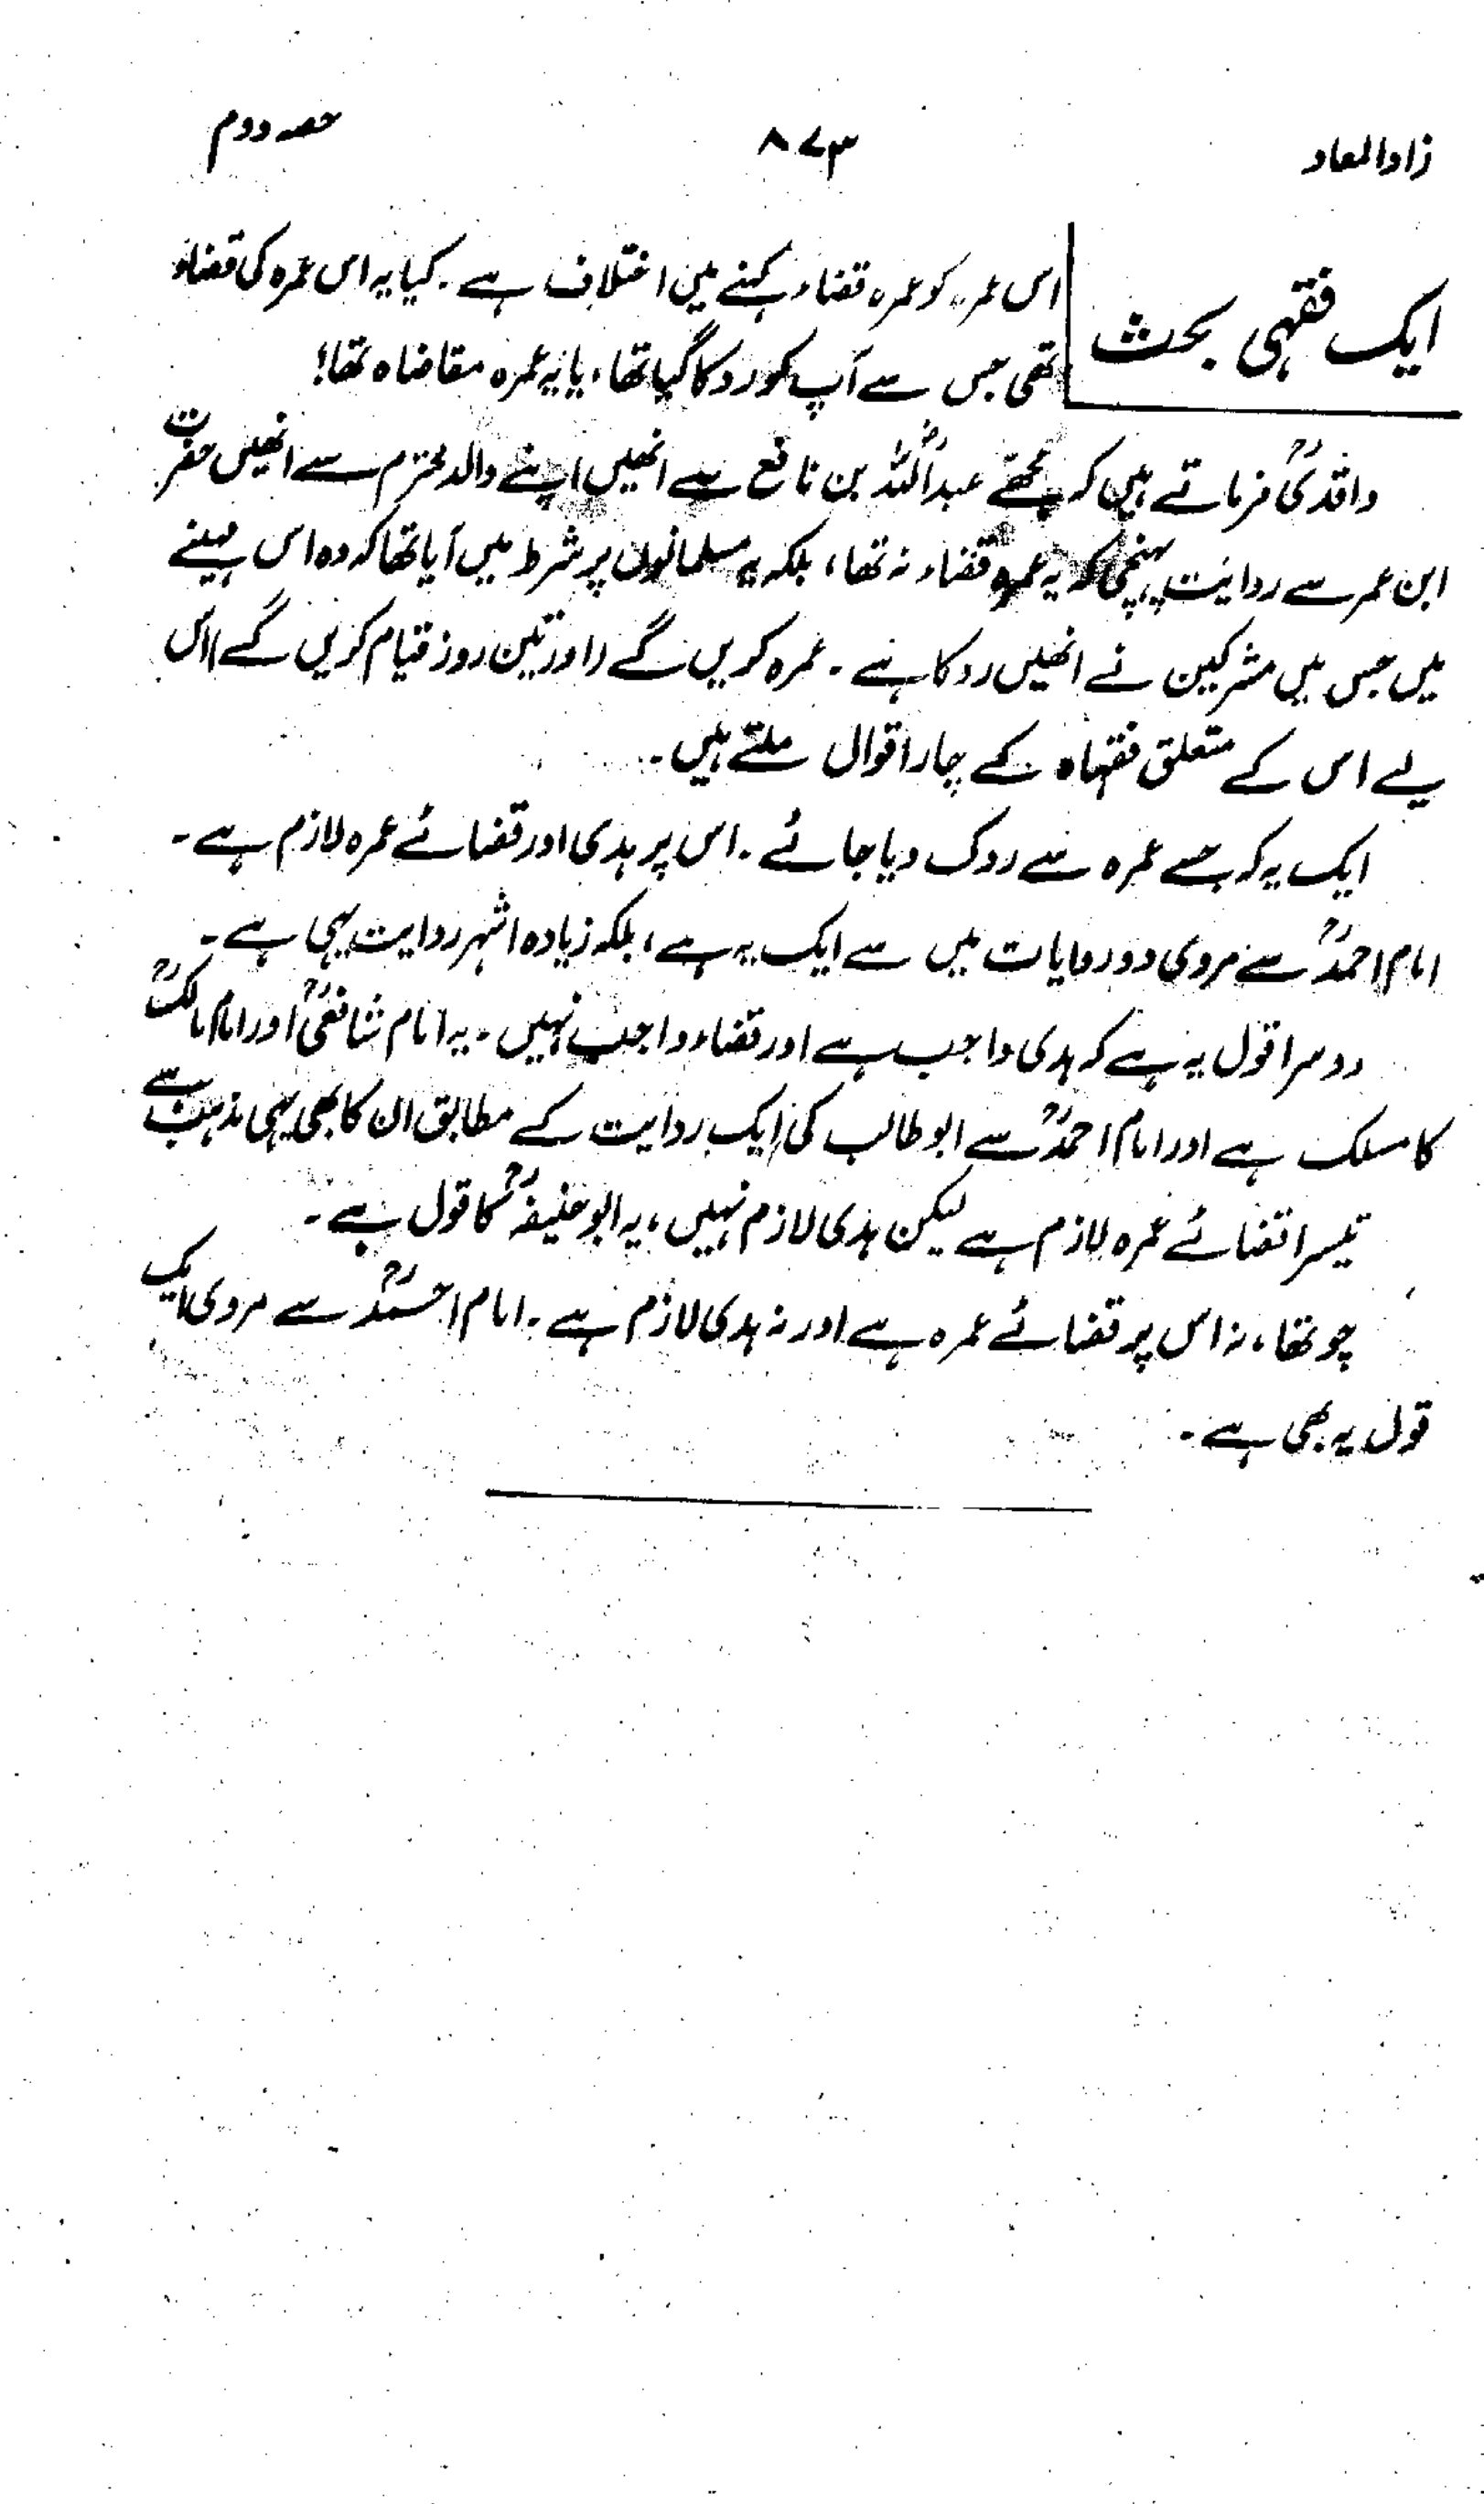 زادالمعاد
۸۷۳
حصہ دوم
ایک فقہی بحث
اس عمرہ کو عمرہ قضاء کہنے میں اختلاف ہے۔ کیا یہ اس عمرہ کی قضاء
تھی جس سے آپ کو روکا گیا تھا، یا یہ عمرہ مقاضاہ تھا!
واقدیؒ فرماتے ہیں کہ مجھے عبداللہؓ بن نافع سے انھیں اپنے والد محترم سے انھیں حضرت
ابن عمر سے روایت پہنچی کہ یہ عمرہ قضاء نہ تھا، بلکہ یہ مسلمانوں پر شرط میں آیا تھا کہ وہ اس مہینے
میں جس میں مشرکین نے انھیں روکا ہے۔ عمرہ کریں گے (اور تین روز قیام کریں گے) اس
لیے اس کے متعلق فقہاء کے چار اقوال ملتے ہیں۔
ایک یہ کہ جسے عمرہ سے روک دیا جائے۔ اس پر ہدی اور قضائے عمرہ لازم ہے۔
امام احمدؒ سے مروی دو روایات میں سے ایک یہ ہے، بلکہ زیادہ اشہر روایت یہی ہے۔
دوسرا قول یہ ہے کہ ہدی واجب ہے اور قضاء واجب نہیں۔ یہ امام شافعیؒ اور امام مالکؒ
کا مسلک ہے اور امام احمدؒ سے ابو طالب کی ایک روایت کے مطابق ان کا بھی یہی مذہب ہے
تیسرا قضائے عمرہ لازم ہے لیکن ہدی لازم نہیں، یہ ابو حنیفہؒ کا قول ہے۔
چوتھا، نہ اس پر قضائے عمرہ ہے اور نہ ہدی لازم ہے۔ امام احمدؒ سے مروی ایک
قول یہ بھی ہے۔